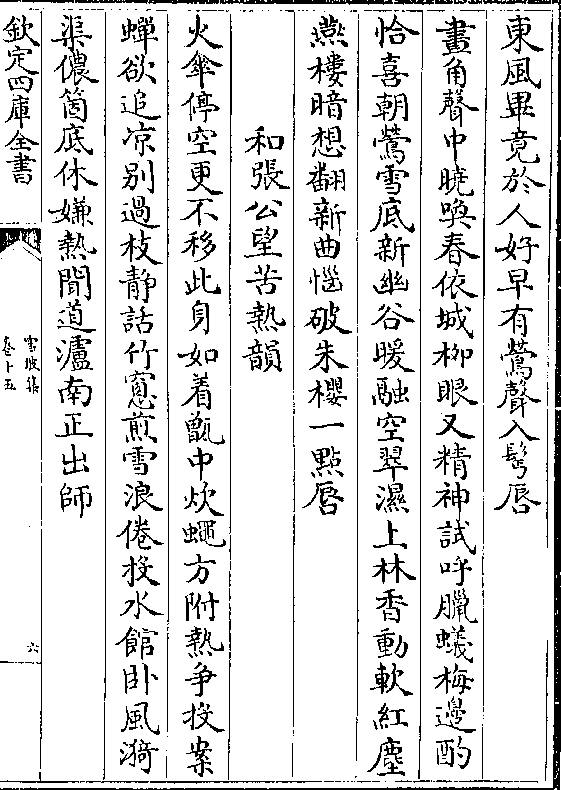 東風畢竟於人好早有鶯聲入髩唇
畫角聲中曉喚春依城栁眼又精神試呼臘蟻梅邉酌
恰喜朝鶯雪底新幽谷暖融空翠濕上林香動軟紅塵
燕樓暗想翻新曲惱破朱櫻一㸃唇
和張公望苦熱韻
火傘停空更不移此身如着甑中炊蠅方附熱爭投案
蟬欲追凉别過枝靜話竹窻煎雪浪倦投水館卧風漪
渠儂箇底休嫌熱聞道瀘南正出師
欽定四庫全書
雪坡集
卷十五
六